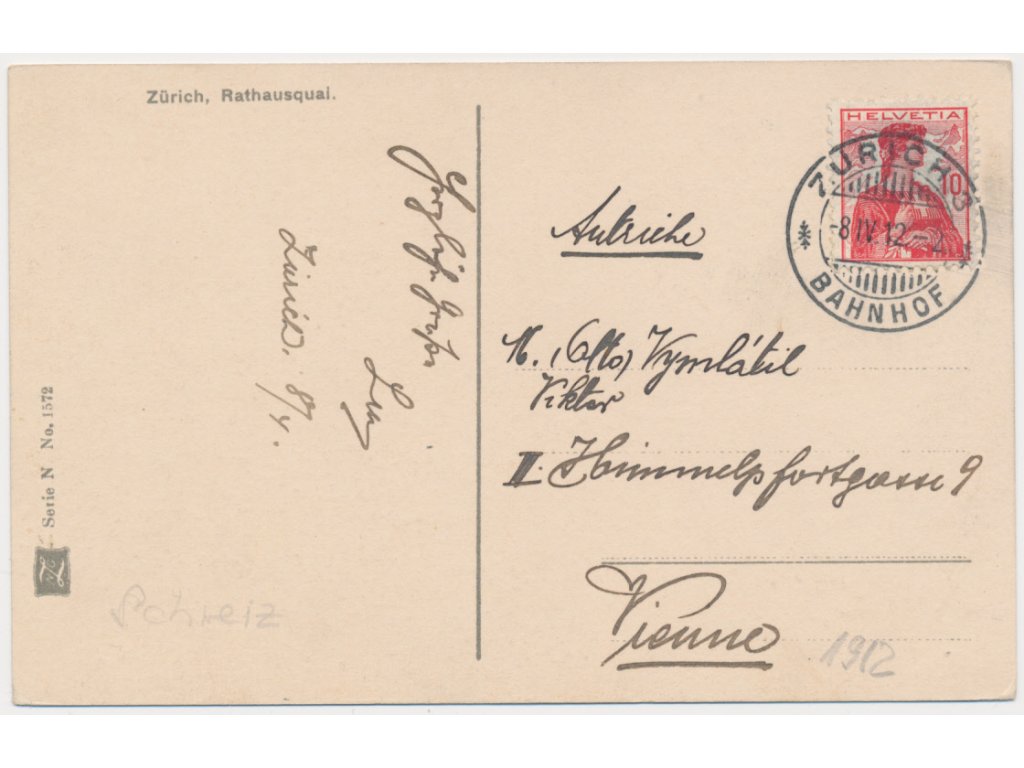 Zürich, Rathausquai.
Zürich. 8/4.
Serie N No. 1572
Schweiz
HELVETIA
10
ZÜRICH 3
-8 IV. 12.-
BAHNHOF
Autriche
Vymlátil
Viktor
II. Himmelpfortgasse 9
Vienne
1912